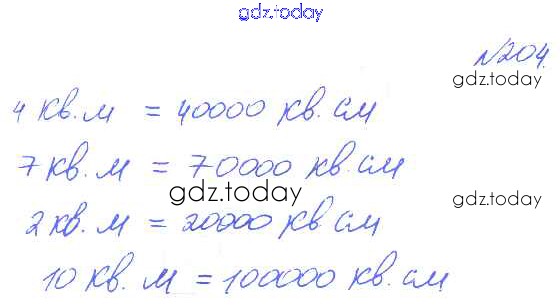 gdz.today
№204.
gdz.today
4 кв.м = 40000 кв.см
7 кв.м = 70000 кв.см
gdz.today
gdz.today
2 кв.м = 20000 кв см
10 кв.м = 100000 кв.см